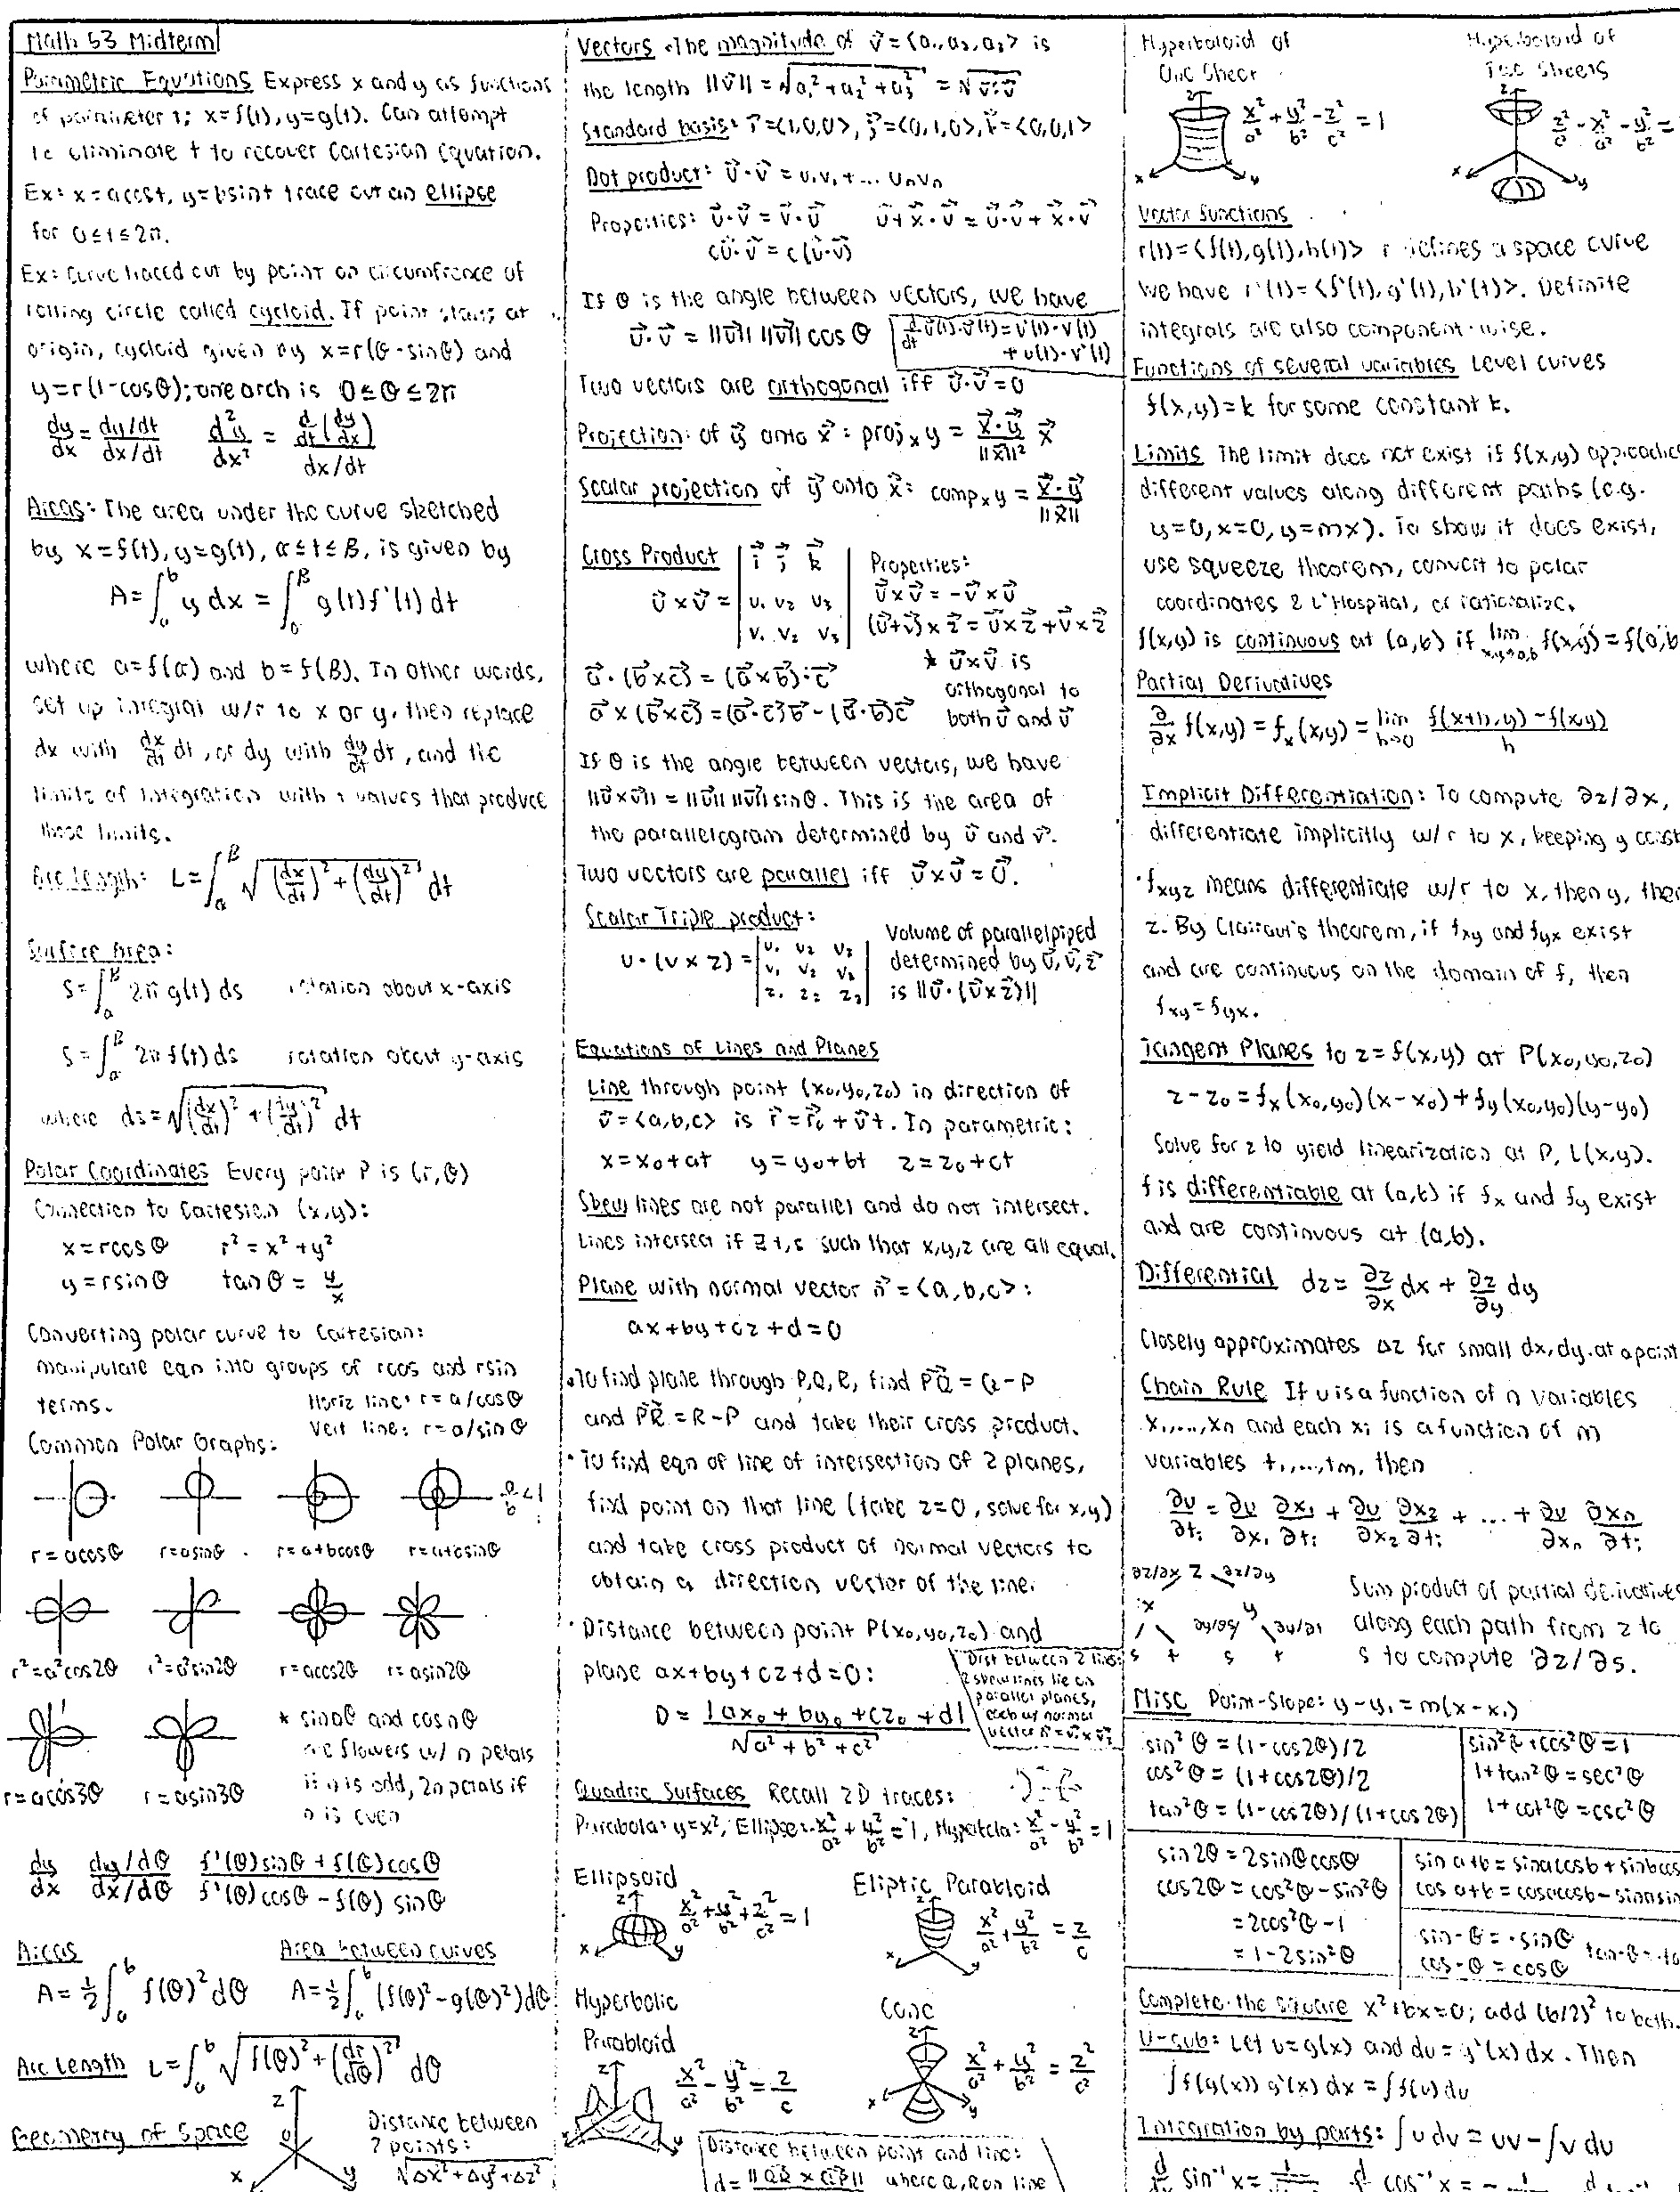 Math 53 Midterm
Parametric Equations Express x and y as functions
of parameter t; x=f(t), y=g(t). Can attempt
to eliminate t to recover Cartesian Equation.
Ex: x=acost, y=bsint trace out an ellipse
for 0≤t≤2π.
Ex: Curve traced out by point on circumfrence of
rolling circle called cycloid. If point starts at
origin, cycloid given by x=r(θ-sinθ) and
y=r(1-cosθ); one arch is 0≤θ≤2π
dy/dx = (dy/dt)/(dx/dt)   d²y/dx² = (d/dt(dy/dx))/(dx/dt)
Areas: The area under the curve sketched
by x=f(t), y=g(t), α≤t≤β, is given by
A=∫_a^b y dx = ∫_α^β g(t)f'(t) dt
where a=f(α) and b=f(β). In other words,
set up integral w/r to x or y, then replace
dx with dx/dt dt, or dy with dy/dt dt, and the
limits of integration with t values that produce
those limits.
Arc Length: L=∫_α^β √((dx/dt)²+(dy/dt)²) dt
Surface Area:
S=∫_α^β 2π g(t) ds   rotation about x-axis
S=∫_α^β 2π f(t) ds   rotation about y-axis
where ds=√((dx/dt)²+(dy/dt)²) dt
Polar Coordinates Every point P is (r,θ)
Connection to Cartesian (x,y):
x=rcosθ   r²=x²+y²
y=rsinθ   tanθ = y/x
Converting polar curve to Cartesian:
manipulate eqn into groups of rcos and rsin
terms.   Horiz line: r=a/cosθ
Vert line: r=a/sinθ
Common Polar Graphs:
a/b<1
r=acosθ   r=asinθ   r=a+bcosθ   r=a+bsinθ
r²=a²cos2θ   r²=a²sin2θ   r=acos2θ   r=asin2θ
* sinnθ and cosnθ
are flowers w/ n petals
if n is odd, 2n petals if
n is even
r=acos3θ   r=asin3θ
dy/dx   (dy/dθ)/(dx/dθ)   (f'(θ)sinθ+f(θ)cosθ)/(f'(θ)cosθ-f(θ)sinθ)
Areas   Area between curves
A=½∫_a^b f(θ)²dθ   A=½∫_a^b (f(θ)²-g(θ)²)dθ
Arc Length L=∫_a^b √(f(θ)²+(dr/dθ)²) dθ
Geometry of Space
z
0
x   y
Distance between
2 points:
√Δx²+Δy²+Δz²
Vectors •The magnitude of v⃗=<a₁,a₂,a₃> is
the length ||v⃗||=√a₁²+a₂²+a₃² = √v⃗·v⃗
Standard basis: i⃗=<1,0,0>, j⃗=<0,1,0>, k⃗=<0,0,1>
Dot product: u⃗·v⃗ = u₁v₁+... uₙvₙ
Properties: u⃗·v⃗ = v⃗·u⃗   u⃗+x⃗·v⃗ = u⃗·v⃗+x⃗·v⃗
cu⃗·v⃗ = c(u⃗·v⃗)
If θ is the angle between vectors, we have
u⃗·v⃗ = ||u⃗|| ||v⃗|| cosθ
d/dt u⃗(t)·v⃗(t)=u'(t)·v(t)
+u(t)·v'(t)
Two vectors are orthogonal iff u⃗·v⃗=0
Projection: of y⃗ onto x⃗: projₓy = (x⃗·y⃗)/||x⃗||² x⃗
Scalar projection of y⃗ onto x⃗: compₓy = (x⃗·y⃗)/||x⃗||
Cross Product | i⃗ j⃗ k⃗ |   Properties:
u⃗×v⃗ = | u₁ u₂ u₃ |   u⃗×v⃗=-v⃗×u⃗
| v₁ v₂ v₃ |   (u⃗+v⃗)×z⃗=u⃗×z⃗+v⃗×z⃗
* u⃗×v⃗ is
orthogonal to
both u⃗ and v⃗
a⃗·(b⃗×c⃗)=(a⃗×b⃗)·c⃗
a⃗×(b⃗×c⃗)=(a⃗·c⃗)b⃗-(a⃗·b⃗)c⃗
If θ is the angle between vectors, we have
||u⃗×v⃗|| = ||u⃗|| ||v⃗|| sinθ. This is the area of
the parallelogram determined by u⃗ and v⃗.
Two vectors are parallel iff u⃗×v⃗=0⃗.
Scalar Triple product:
u·(v×z)= | u₁ u₂ u₃ |
| v₁ v₂ v₃ |
| z₁ z₂ z₃ |
Volume of parallelpiped
determined by u⃗,v⃗,z⃗
is ||u⃗·(v⃗×z⃗)||
Equations of Lines and Planes
Line through point (x₀,y₀,z₀) in direction of
v⃗=<a,b,c> is r⃗=r⃗₀+v⃗t. In parametric:
x=x₀+at   y=y₀+bt   z=z₀+ct
Skew lines are not parallel and do not intersect.
Lines intersect if ∃ t,s such that x,y,z are all equal.
Plane with normal vector n⃗=<a,b,c>:
ax+by+cz+d=0
•To find plane through P,Q,R, find PQ⃗ = Q-P
and PR⃗ = R-P and take their cross product.
•To find eqn of line of intersection of 2 planes,
find point on that line (take z=0, solve for x,y)
and take cross product of normal vectors to
obtain a direction vector of the line.
•Distance between point P(x₀,y₀,z₀) and
plane ax+by+cz+d=0:
D = |ax₀+by₀+cz₀+d| / √a²+b²+c²
Dist between 2 lines:
2 skew lines lie on
parallel planes,
each w/ normal
vector n⃗=v⃗₁×v⃗₂
Quadric Surfaces Recall 2D traces:
Parabola: y=x², Ellipse: x²/a²+y²/b²=1, Hyperbola: x²/a²-y²/b²=1
Ellipsoid   Eliptic Parabloid
x²/a²+y²/b²+z²/c²=1   x²/a²+y²/b²=z/c
Hyperbolic   Cone
Parabloid
x²/a²-y²/b²=z/c   x²/a²+y²/b²=z²/c²
Distance between point and line:
d= ||QR⃗×QP⃗|| where Q,R on line
Hyperboloid of   Hyperboloid of
One Sheet   Two Sheets
x²/a²+y²/b²-z²/c²=1   z²/c²-x²/a²-y²/b²=
Vector functions
r(t)=<f(t),g(t),h(t)> r defines a space curve
We have r'(t)=<f'(t),g'(t),h'(t)>. Definite
integrals are also component-wise.
Functions of several variables Level curves
f(x,y)=k for some constant k.
Limits The limit does not exist if f(x,y) approaches
different values along different paths (e.g.
y=0, x=0, y=mx). To show it does exist,
use squeeze theorem, convert to polar
coordinates & L'Hospital, or rationalize.
f(x,y) is continuous at (a,b) if lim x,y→a,b f(x,y)=f(a,b
Partial Derivatives
∂/∂x f(x,y)=fₓ(x,y)=lim h→0 (f(x+h,y)-f(x,y))/h
Implicit Differentiation: To compute ∂z/∂x,
differentiate implicitly w/r to x, keeping y const
•fxyz means differentiate w/r to x, then y, then
z. By Clairaut's theorem, if fxy and fyx exist
and are continuous on the domain of f, then
fxy=fyx.
Tangent Planes to z=f(x,y) at P(x₀,y₀,z₀)
z-z₀=fₓ(x₀,y₀)(x-x₀)+fy(x₀,y₀)(y-y₀)
Solve for z to yield linearization at P, L(x,y).
f is differentiable at (a,b) if fx and fy exist
and are continuous at (a,b).
Differential dz = ∂z/∂x dx + ∂z/∂y dy
Closely approximates Δz for small dx,dy.at a point
Chain Rule If u is a function of n variables
x₁,...,xₙ and each xᵢ is a function of m
variables t₁,...,tm, then
∂u/∂tᵢ = ∂u/∂x₁ ∂x₁/∂tᵢ + ∂u/∂x₂ ∂x₂/∂tᵢ + ... + ∂u/∂xₙ ∂xₙ/∂tᵢ
∂z/∂x z ∂z/∂y
x   y
∂y/∂s   ∂y/∂t
s t s t
Sum product of partial derivatives
along each path from z to
s to compute ∂z/∂s.
Misc Point-Slope: y-y₁=m(x-x₁)
sin²θ=(1-cos2θ)/2   sin²θ+cos²θ=1
cos²θ=(1+cos2θ)/2   1+tan²θ=sec²θ
tan²θ=(1-cos2θ)/(1+cos2θ)   1+cot²θ=csc²θ
sin2θ=2sinθcosθ
cos2θ=cos²θ-sin²θ
=2cos²θ-1
=1-2sin²θ
sin a+b=sinacosb+sinbcos
cos a+b=cosacosb-sinasin
sin-θ=-sinθ   tan-θ=-ta
cos-θ=cosθ
Complete the square x²+bx=0; add (b/2)² to both.
U-sub: Let u=g(x) and du=g'(x)dx. Then
∫f(g(x))g'(x)dx=∫f(u)du
Integration by parts: ∫u dv = uv-∫v du
d/dx sin⁻¹x=   d cos⁻¹x=-